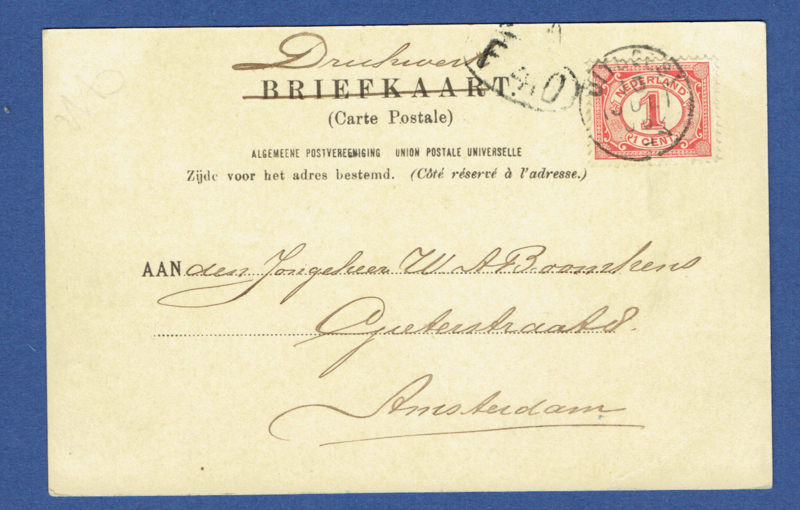 Drukwerk
BRIEFKAART
(Carte Postale)
ALGEMEENE POSTVEREENIGING UNION POSTALE UNIVERSELLE
Zijde voor het adres bestemd. (Côté réservé à l'adresse.)
NEDERLAND
1
1 CENT
AAN den Jongeheer W A Boomkens
Amsterdam